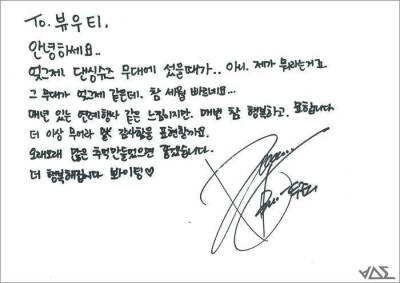 To. 뷰우티.
안녕하세요..
엊그제 댄싱슈즈 무대에 섰을때가.. 아니. 제가 뭐라는거죠.
그 무대가 엊그제 같은데. 참 세월 빠르네요...
매년 있는 연례행사 같은 느낌이지만. 매번 참 행복하고. 묘합니다
더 이상 무어라 감사함을 표현할까요.
오래오래 많은 추억만들었으면 좋겠습니다.
더 행복해집시다 봐이팅♡